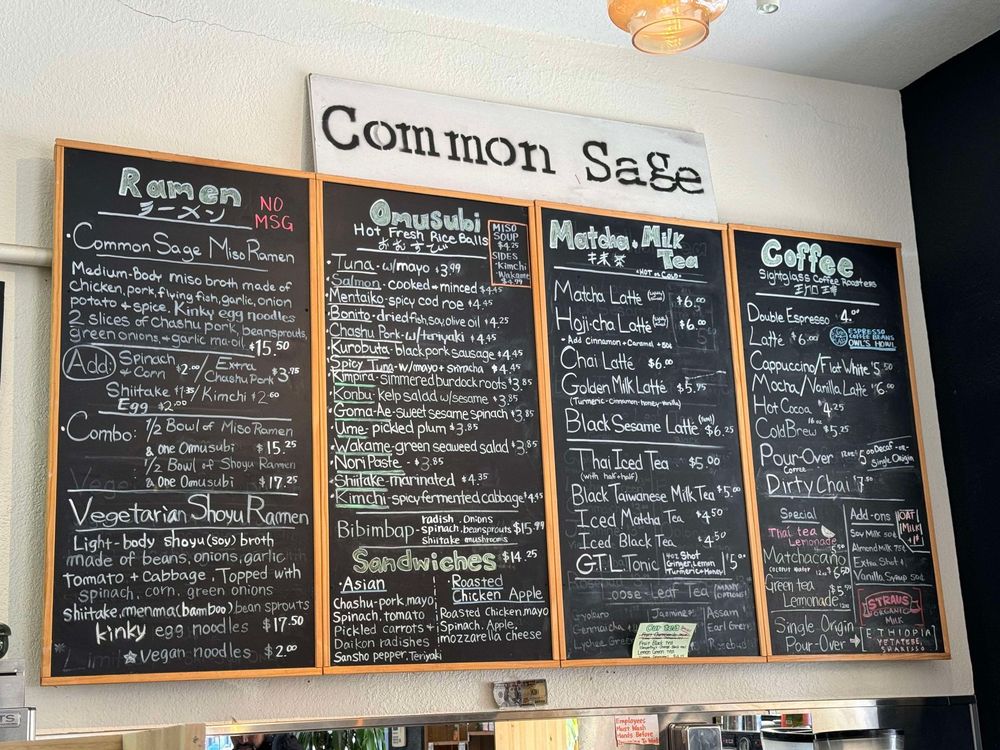 Common Sage
Ramen
ラーメン
NO
MSG
Common Sage Miso Ramen
Medium-Body miso broth made of
chicken, pork, flying fish, garlic, onion
potato + spice. Kinky egg noodles
2 slices of Chashu pork, beansprouts,
green onions, + garlic ma-oil. $15.50
Add: Spinach + Corn $2.00 / Extra Chashu Pork $3.75
Shiitake / Kimchi $2.60
Egg $2.00
Combo: 1/2 Bowl of Miso Ramen
& one Omusubi $15.25
1/2 Bowl of Shoyu Ramen
& one Omusubi $17.25
Vegetarian Shoyu Ramen
Light-body shoyu (soy) broth
made of beans, onions, garlic
tomato + cabbage. Topped with
spinach, corn, green onions
shiitake, menma (bamboo) bean sprouts
kinky egg noodles $17.50
Vegan noodles $2.00
Omusubi
Hot Fresh Rice Balls
おむすび
MISO
SOUP
$4.25
SIDES
Kimchi
Wakame
Tuna - w/mayo $3.99
Salmon - cooked + minced $4.45
Mentaiko - spicy cod roe $4.45
Bonito - dried fish, soy, olive oil $4.25
Chashu Pork - w/teriyaki $4.45
Kurobuta - black pork sausage $4.45
Spicy Tuna - w/mayo + sriracha $4.45
Kimpira - simmered burdock roots $3.85
Konbu - kelp salad w/sesame $3.85
Goma-Ae - sweet sesame spinach $3.85
Ume - pickled plum $3.85
Wakame - green seaweed salad $3.85
Nori Paste - $3.85
Shiitake - marinated $4.35
Kimchi - spicy fermented cabbage $4.45
Bibimbap - radish, onions
spinach, beansprouts
shiitake mushrooms $15.99
Sandwiches $14.25
Asian
Chashu-pork, mayo
Spinach, tomato
Pickled carrots +
Daikon radishes
Sansho pepper, Teriyaki
Roasted
Chicken Apple
Roasted Chicken, mayo
Spinach, Apple,
mozzarella cheese
Matcha + Milk
Tea
抹茶
HOT or COLD
Matcha Latté $6.00
Hoji-cha Latté $6.00
Add Cinnamon + Caramel + 50¢
Chai Latté $6.00
Golden Milk Latté $5.75
(Turmeric-Cinnamon-honey-Vanilla)
Black Sesame Latté $6.25
Thai Iced Tea $5.00
(with half + half)
Black Taiwanese Milk Tea $5.00
Iced Matcha Tea $4.50
Iced Black Tea $4.50
G.T.L. Tonic 4oz Shot
Ginger, Lemon
Turmeric + Honey $5.00
Loose-Leaf Tea
Gyokuro
Genmaicha
Lychee Green
Jasmine
Assam
Earl Grey
Rooibos
Coffee
Sightglass Coffee Roasters
Double Espresso $4.00
Latté $6.00
ESPRESSO
COFFEE BEANS
OWL'S HOWL
Cappuccino/Flat White $5.50
Mocha/Vanilla Latté $6.00
Hot Cocoa $4.25
Cold Brew 16oz $5.25
Pour-Over Coffee $5.00 Decaf -or-
Single Origin
Dirty Chai $7.50
Special
Thai tea
Lemonade
Matchacano
Coconut Water
Green tea
Lemonade
Add-ons
Soy Milk 50¢
Almond Milk 75¢
Extra Shot
Vanilla Syrup 50¢
OAT
MILK
$1
STRAUS
ORGANIC
MILK
Single Origin
Pour-Over →
ETHIOPIA
Employees
Must Wash
Hands Before